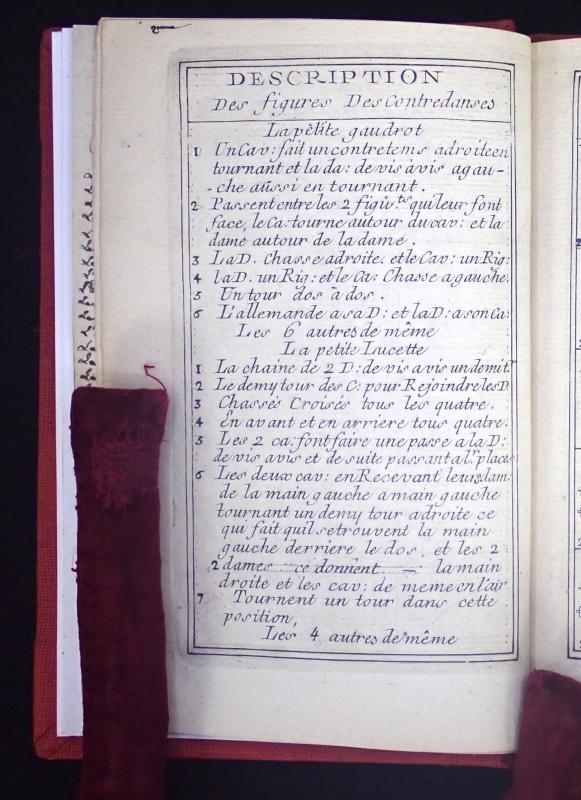 DESCRIPTION
Des figures Des Contredanses
La pêtite gaudrot
1 Un Cav: fait un contretems adroite en
tournant et la da: de vis àvis agau-
-che aûssi en tournant.
2 Passent entre les 2 figu.ts qui leur font
face, le Ca: tourne autour du cav: et la
dame autour de la dame.
3 La D. chasse adroite. et le Cav: un Rig:
4 la D. un Rig: et le Ca: Chasse agauche.
5 Un tour dos à dos.
6 L'allemande a sa D: et la D: a son Ca:
Les 6 autres de même
La petite Lucette
1 La chaine de 2 D: de vis avis un demi t.
2 Le demy tour des C: pour Rejoindre les D
3 Chassés Croisés tous les quatre.
4 En avant et en arriere tous quatre.
5 Les 2 ca: font faire une passe a la D:
de vis avis et de suite passant a l.r place
6 Les deux cav: en Recevant leurs dam:
de la main gauche a main gauche
tournant un demy tour adroite ce
qui fait quil se trouvent la main
gauche derriere le dos, et les 2
2 dames ce donnent la main
droite et les cav: de meme en l'air
7 Tournent un tour dans cette
position,
Les 4 autres de même